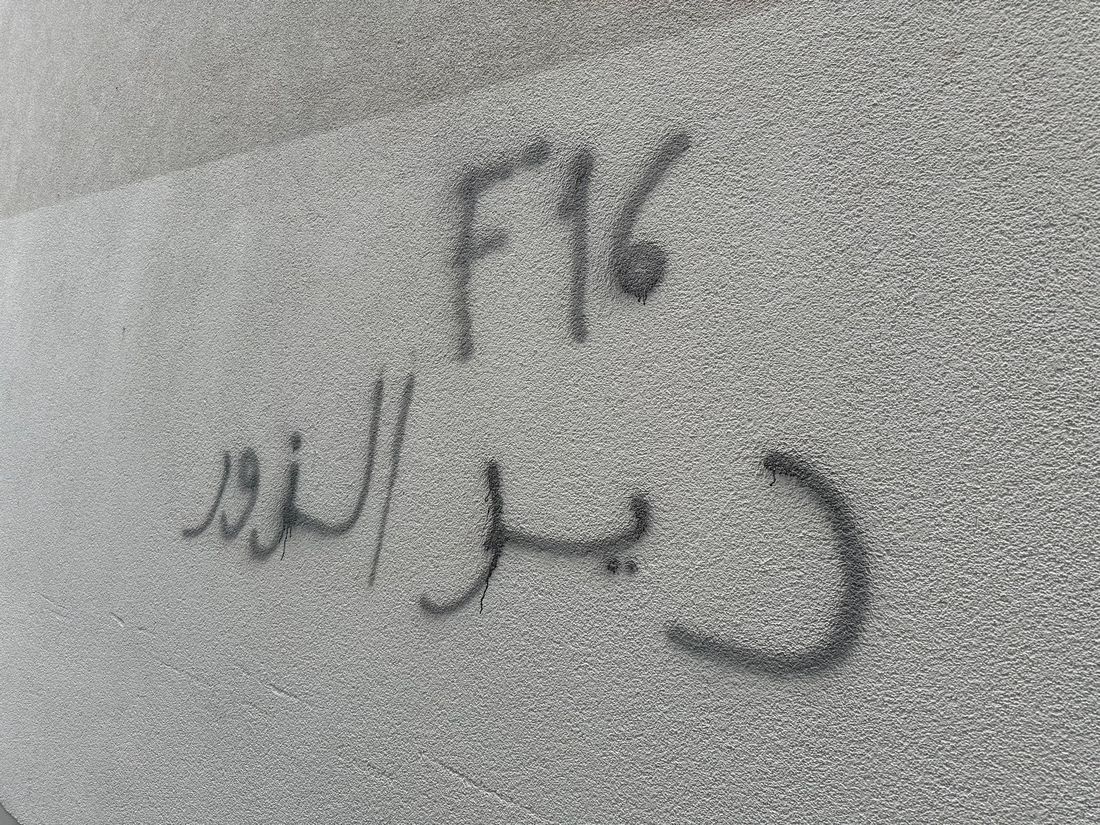 F16
دير الزور